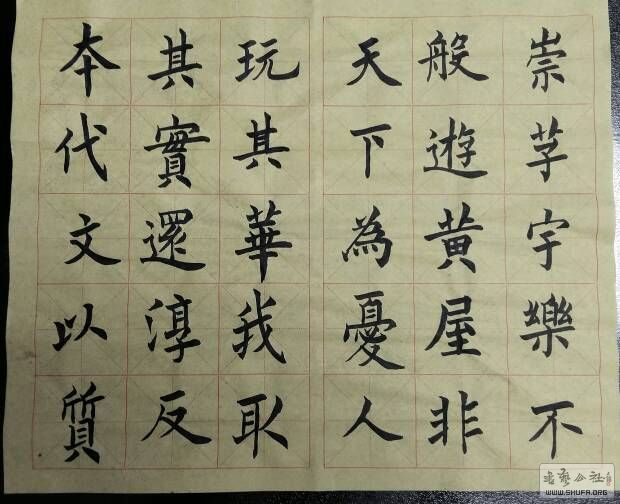 崇茅宇樂不
般遊黄屋非
天下為憂人
玩其華我取
其實還淳反
本代文以質
书艺公社
WWW.SHUFA.ORG